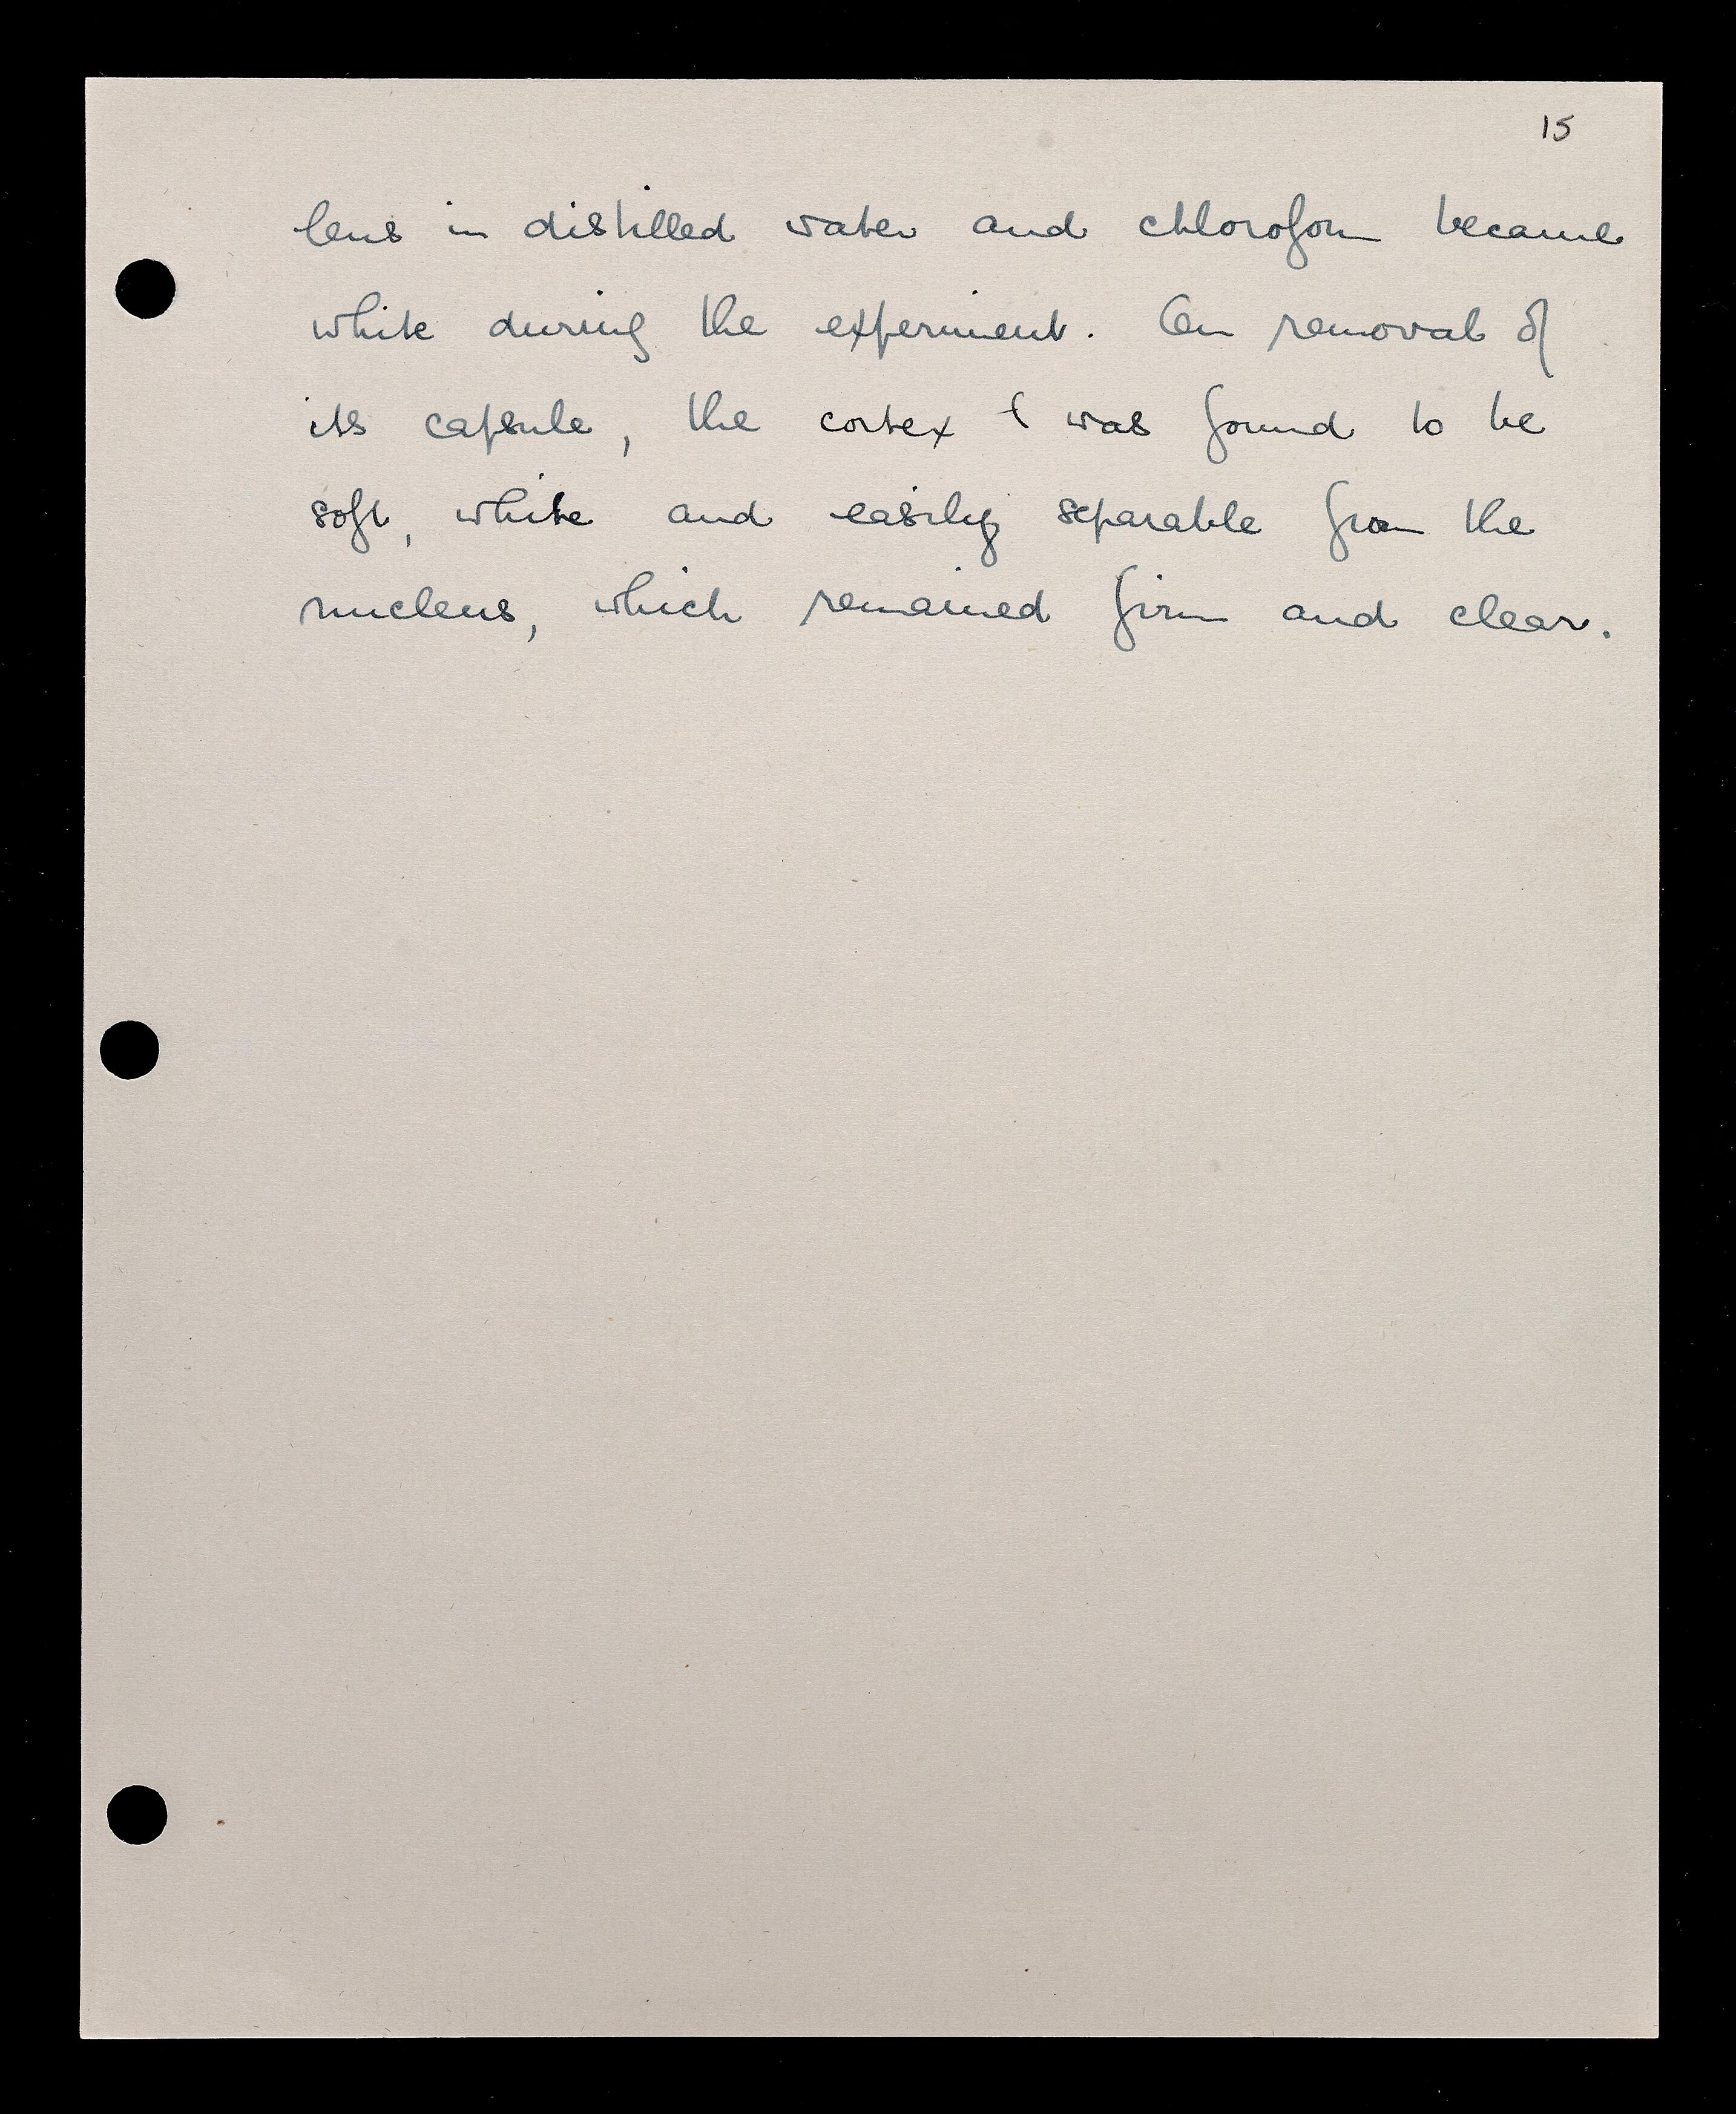 15
lens in distilled water and chloroform became
white during the experiment. On removal of
its capsule, the cortex was found to be
soft, white and easily separable from the
nucleus, which remained firm and clear.